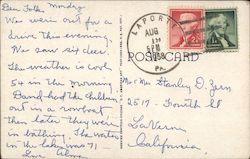 Monday
Dear Folks,
We were out for a
drive this evening.
We saw six deer.
The weather is cool
54 in the morning.
had the children
out in a rowboat
then later they were
in bathing. The water
in the lake was 71
Love
LAPORTE
AUG
PM
1958
PA.
POST CARD
Mr & Mrs Stanley O. Zorn
2517 - Fourth St
La Verne
California